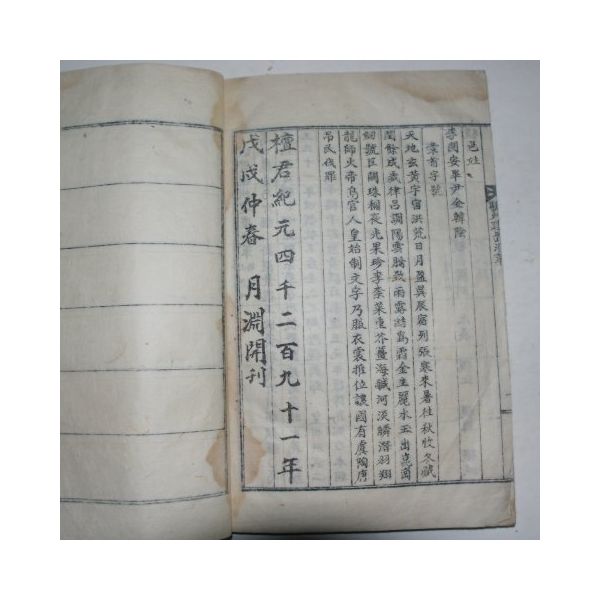 邑姓
李閔安單尹金韓陰
葉首字號
天地玄黃宇宙洪荒日月盈昃辰宿列張寒來暑往秋收冬藏
閏餘成歲律呂調陽雲騰致雨露結爲霜金生麗水玉出崑岡
劒號巨闕珠稱夜光果珍李柰菜重芥薑海鹹河淡鱗潛羽翔
龍師火帝鳥官人皇始制文字乃服衣裳推位讓國有虞陶唐
吊民伐罪
檀君紀元四千二百九十一年
戊戌仲春 月淵開刊